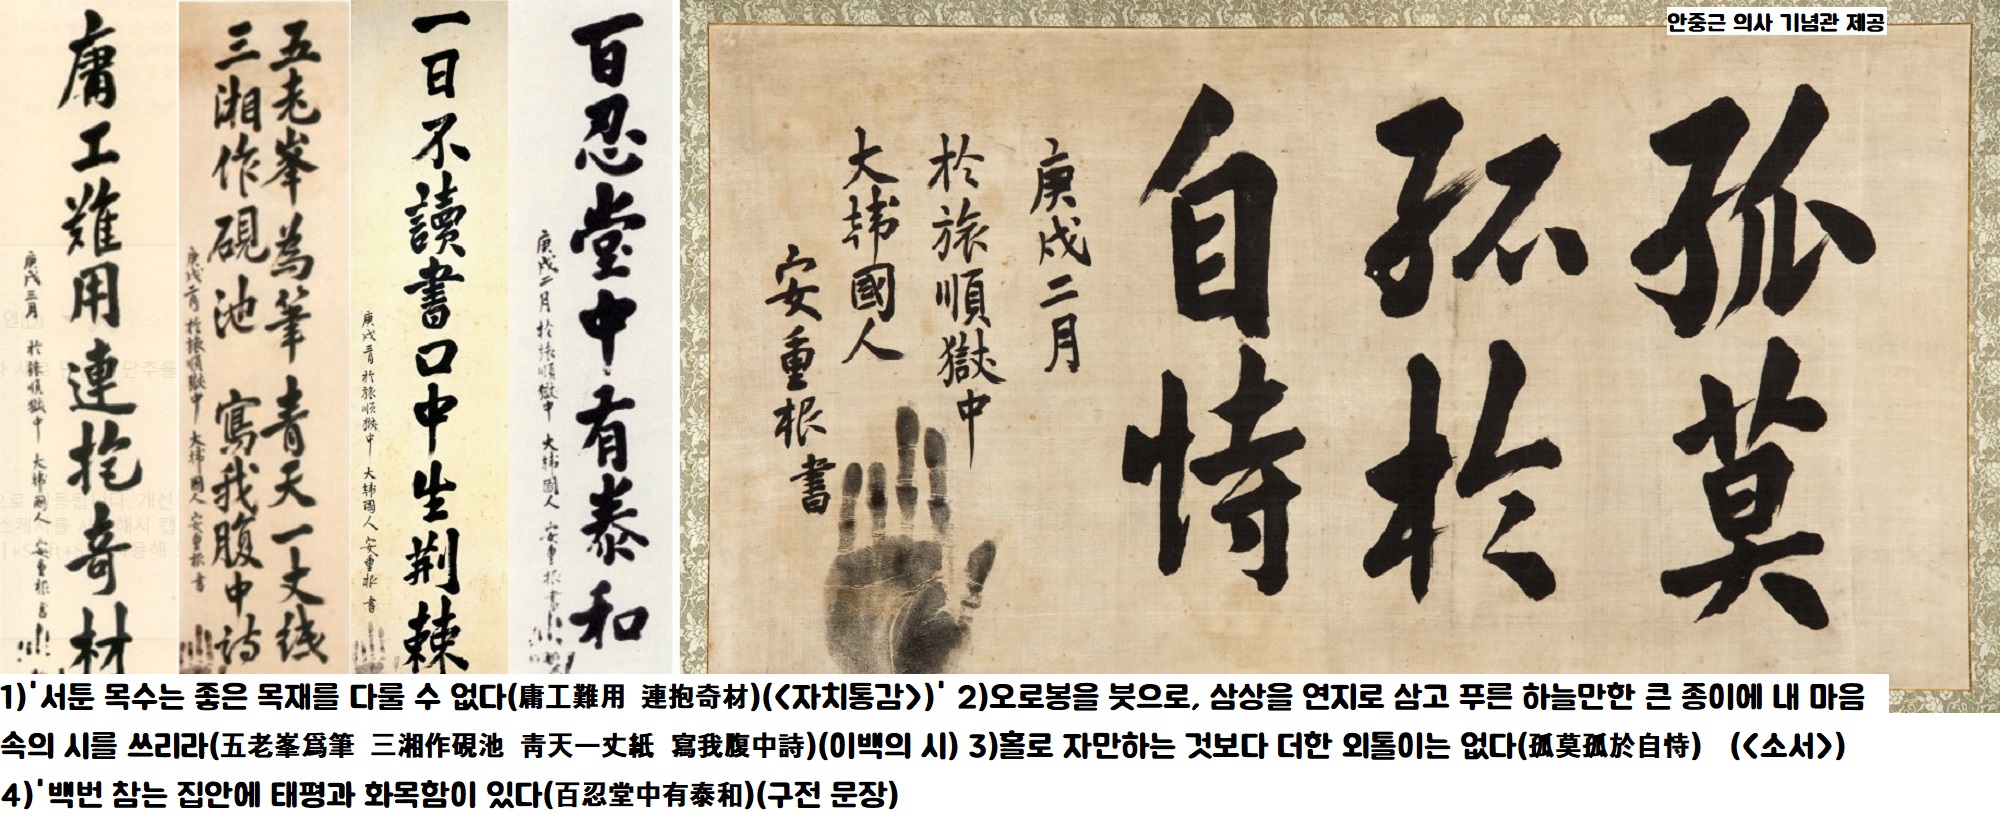 안중근 의사 기념관 제공
庸工難用連抱奇材
庚戌三月 於旅順獄中 大韓國人 安重根 書
五老峯為筆 青天一丈紙
三湘作硯池 寫我腹中詩
庚戌二月 於旅順獄中 大韓國人 安重根 書
一日不讀書口中生荆棘
庚戌三月 於旅順獄中 大韓國人 安重根 書
百忍堂中有泰和
庚戌二月 於旅順獄中 大韓國人 安重根 書
孤莫
孤於
自恃
庚戌二月
於旅順獄中
大韓國人
安重根書
1)'서툰 목수는 좋은 목재를 다룰 수 없다(庸工難用 連抱奇材)(<자치통감>)' 2)오로봉을 붓으로, 삼상을 연지로 삼고 푸른 하늘만한 큰 종이에 내 마음
속의 시를 쓰리라(五老峯爲筆 三湘作硯池 靑天一丈紙 寫我腹中詩)(이백의 시) 3)홀로 자만하는 것보다 더한 외톨이는 없다(孤莫孤於自恃) (<소서>)
4)'백번 참는 집안에 태평과 화목함이 있다(百忍堂中有泰和)(구전 문장)